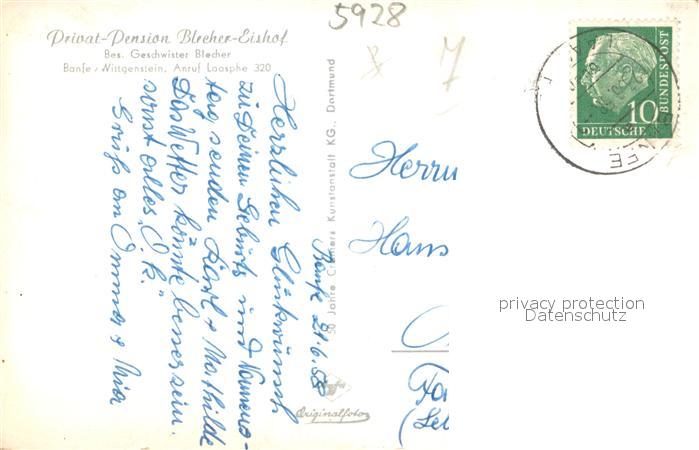 5928
Privat-Pension Blecher-Eishof
Bes. Geschwister Blecher
Banfe/Wittgenstein, Anruf Laasphe 320
Banfe 21.6.58
Herzlichen Glückwunsch
zu Deinem Geburts und Namens-
tag senden Karl + Mathilde
Das Wetter könnte besser sein.
sonst alles „O.k."
Gruß an Omma + Mia
50 Jahre Cramers Kunstanstalt KG., Dortmund
Originalfoto
Herrn
Hans
10
DEUTSCHE
BUNDESPOST
privacy protection
Datenschutz